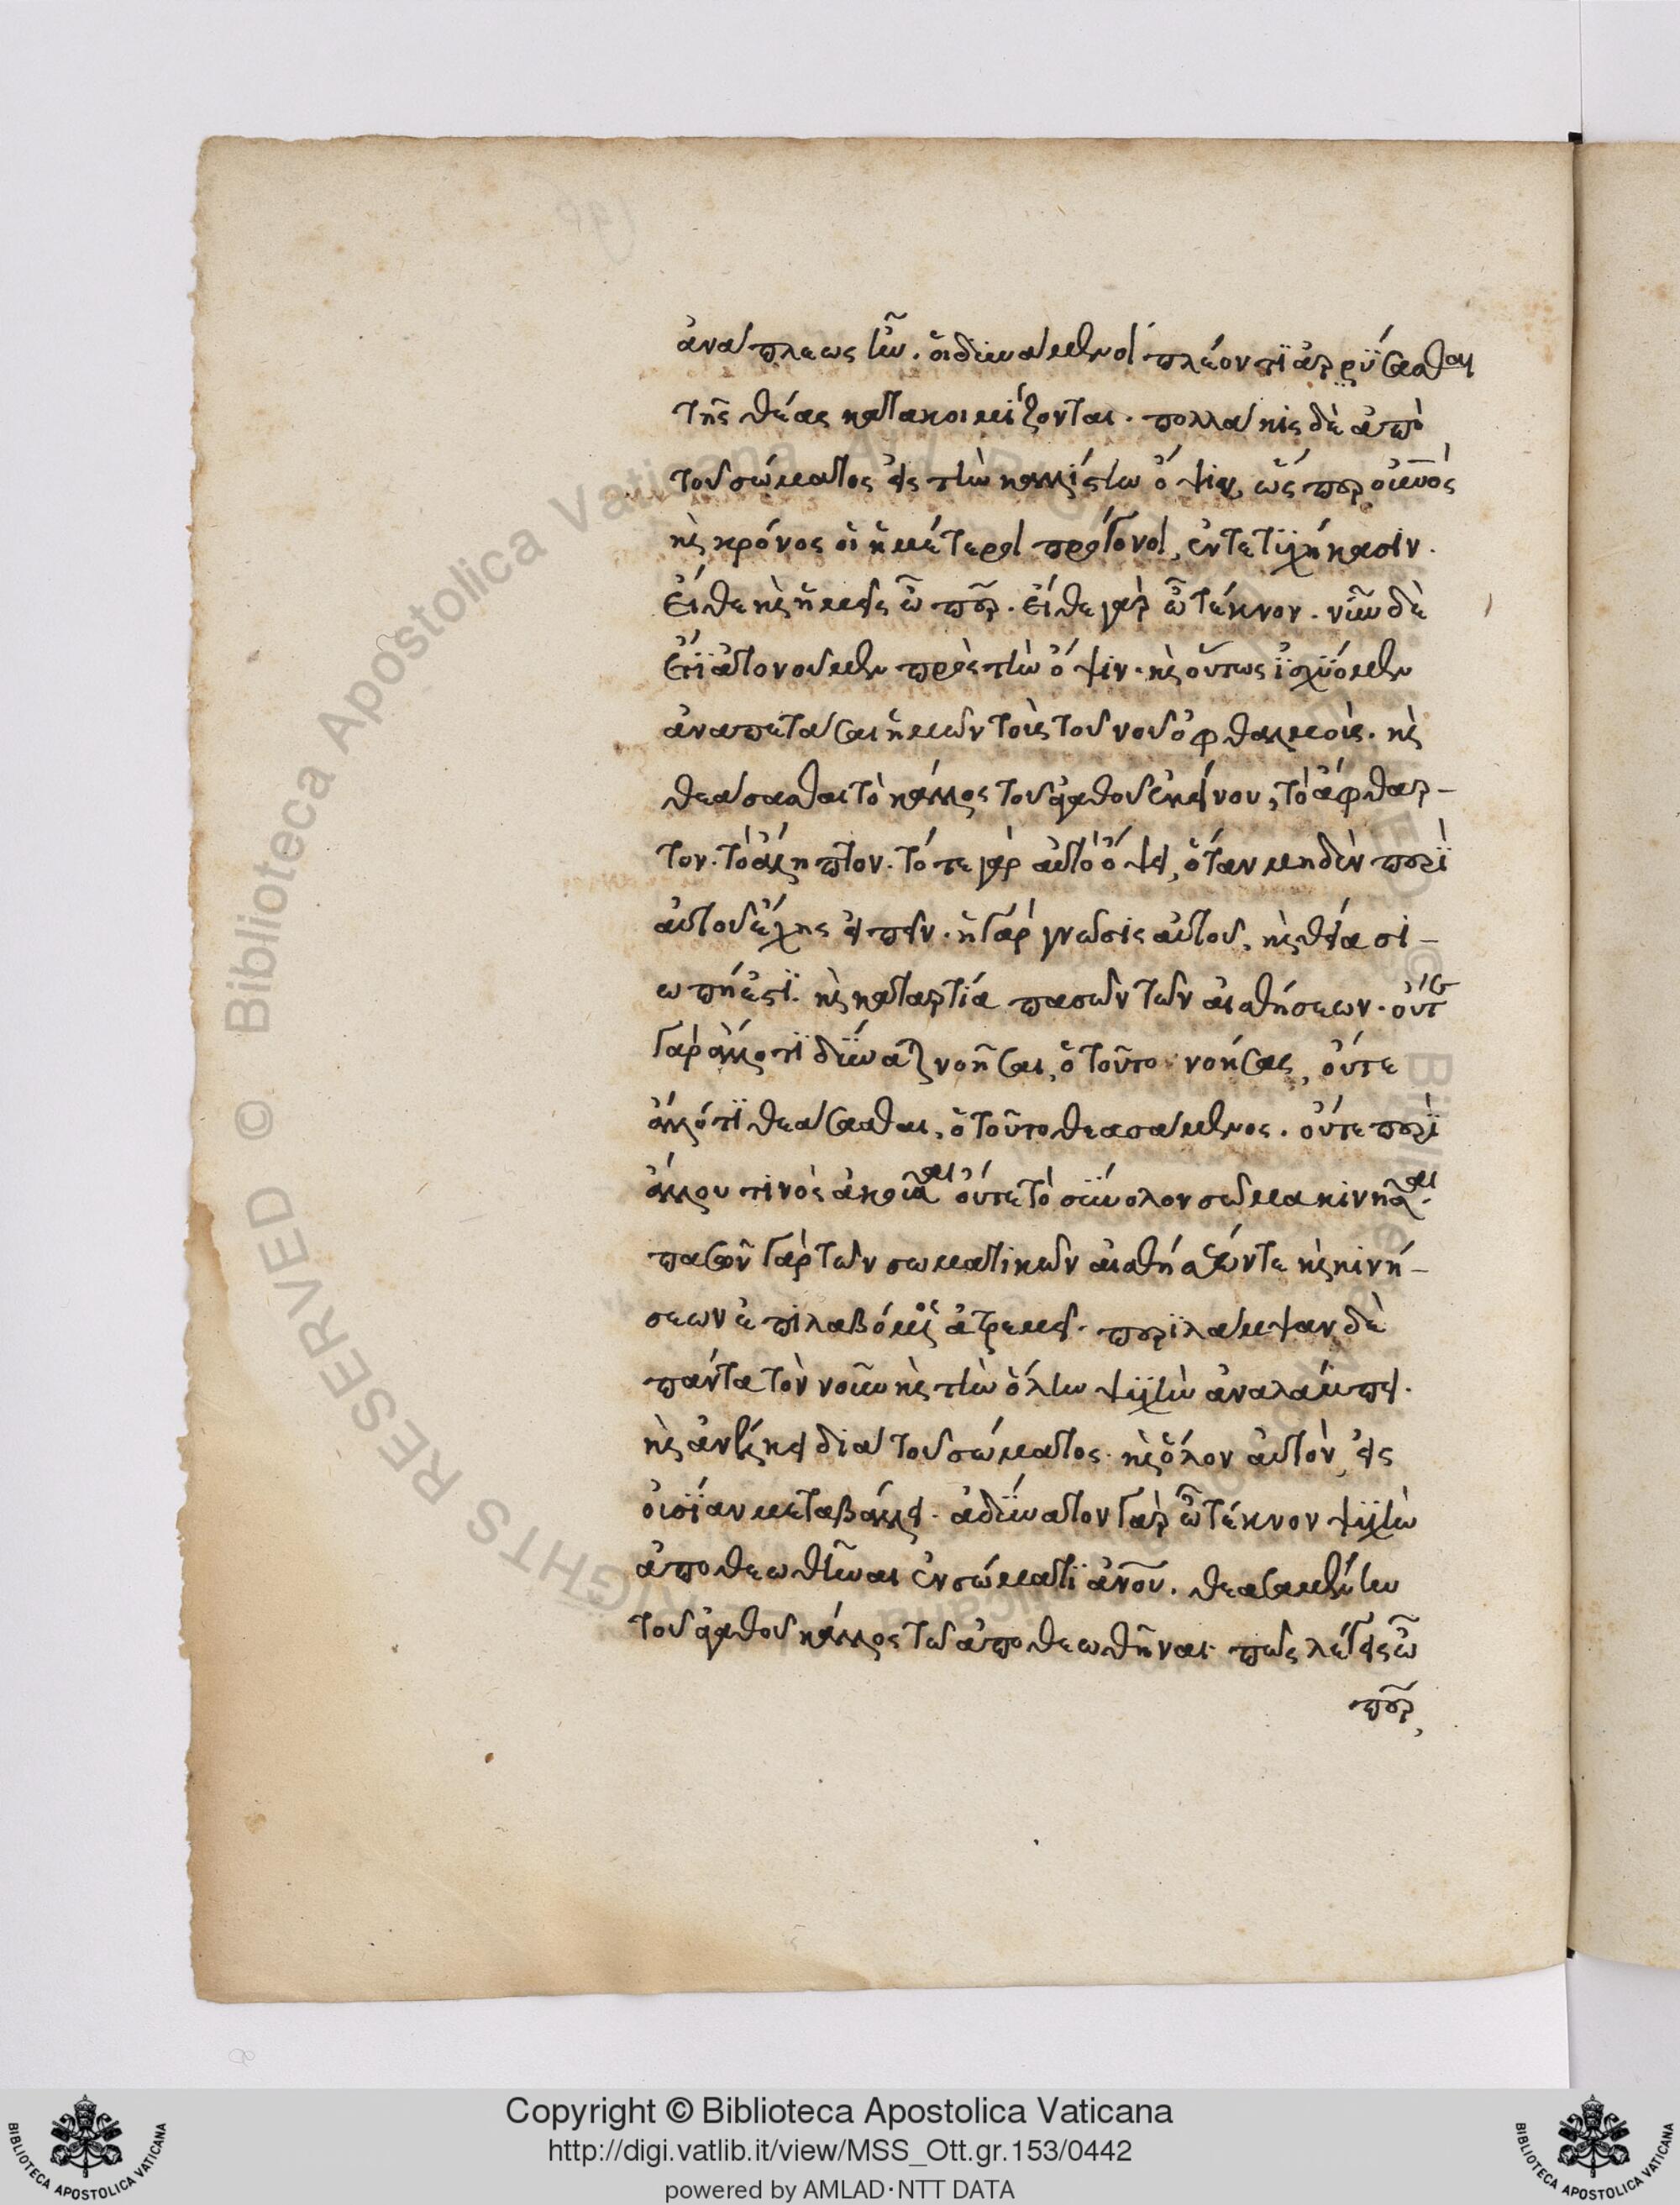 ἀνάπλεως ἦν. οἱ δυνάμενοι πλέον τι ἀρρύσασθαι
τῆς θέας κατακοιμίζονται. πολλάκις δὲ ἀπὸ
τοῦ σώματος εἰς τὴν καλλίστην ὄψιν, ὥσπερ οὐρανὸς
καὶ κρόνος οἱ ἡμέτεροι πρόγονοι, ἐντετυχήκασιν.
εἴθε καὶ ἡμεῖς ὦ πάτερ. εἴθε γὰρ ὦ τέκνον. νῦν δὲ
ἔτι ἀτονοῦμεν πρὸς τὴν ὄψιν. καὶ οὕτως ἰσχύομεν
ἀναπετάσαι ἡμῶν τοὺς τοῦ νοῦ ὀφθαλμούς. καὶ
θεάσασθαι τὸ κάλλος τοῦ ἀγαθοῦ ἐκείνου, τὸ ἄφθαρ-
τον. τὸ ἄληπτον. τότε γὰρ αὐτὸ ὄψει, ὅταν μηδὲν περὶ
αὐτοῦ ἔχῃς εἰπεῖν. ἡ γὰρ γνῶσις αὐτοῦ, καὶ θεία σι-
ωπή ἐστι. καὶ καταργία πασῶν τῶν αἰσθήσεων. οὔτε
γὰρ ἄλλο τι δύναται νοῆσαι, ὁ τοῦτο νοήσας, οὔτε
ἄλλό τι θεάσασθαι, ὁ τοῦτο θεασάμενος. οὔτε περὶ
ἄλλου τινὸς ἀκοῦσαι οὔτε τὸ σύνολον σῶμα κινῆσαι.
πασῶν γὰρ τῶν σωματικῶν αἰσθήσεών τε καὶ κινή-
σεων ἐπιλαβόμενος ἀτρεμεῖ. περιλάμψαν δὲ
πάντα τὸν νοῦν καὶ τὴν ὅλην ψυχὴν ἀναλάμπει.
καὶ ἀνθέλκει διὰ τοῦ σώματος. καὶ ὅλον αὐτὸν, εἰς
οὐσίαν μεταβάλλει. ἀδύνατον γὰρ ὦ τέκνον ψυχὴν
ἀποθεωθῆναι ἐν σώματι ἀνθρώπου. θεασαμένην
τοῦ ἀγαθοῦ κάλλος τῶ ἀποθεωθῆναι. πῶς λέγεις ὦ
πάτερ,
Copyright © Biblioteca Apostolica Vaticana
http://digi.vatlib.it/view/MSS_Ott.gr.153/0442
powered by AMLAD·NTT DATA